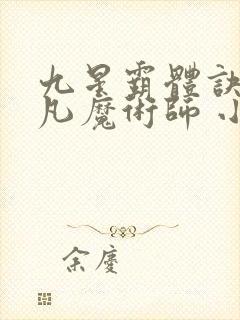 九星霸體訣
凡魔術師 小
余慶